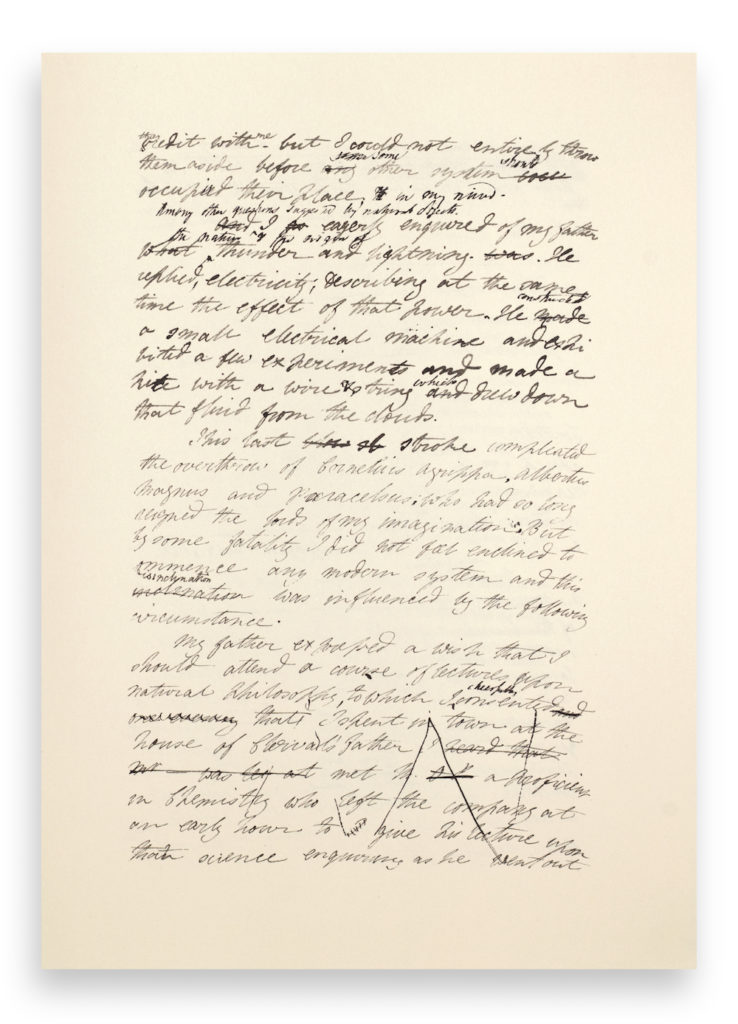 credit with me - but I could not entirely throw
some some should
them aside before any other system
occupied their place in my mind.
Among other questions suggested by natural objects
And I eagerly enquired of my father
the nature & the origin of
what thunder and lightning. was. He
replied, electricity; describing at the same
constructed
time the effect of that power. He made
a small electrical machine and exhi
bited a few experiments and made a
which
kite with a wire & string and drew down
that fluid from the clouds.
This last stroke completed
the overthrow of Cornelius Agrippa, Albertus
Magnus and Paracelsus. who had so long
reigned the lords of my imagination. But
by some fatality I did not feel enclined to
commence any modern system and this
disinclynation
inclination was influenced by the following
circumstance.
My father expressed a wish that I
should attend a course of lectures upon
natural philosophy, to which I consented and
cheerfully
that I spent in town at the
house of Clerval's father I heard that
was met a proficient
in Chemistry who left the company at
an early hour to give his lecture upon
that science enquiring as he went out